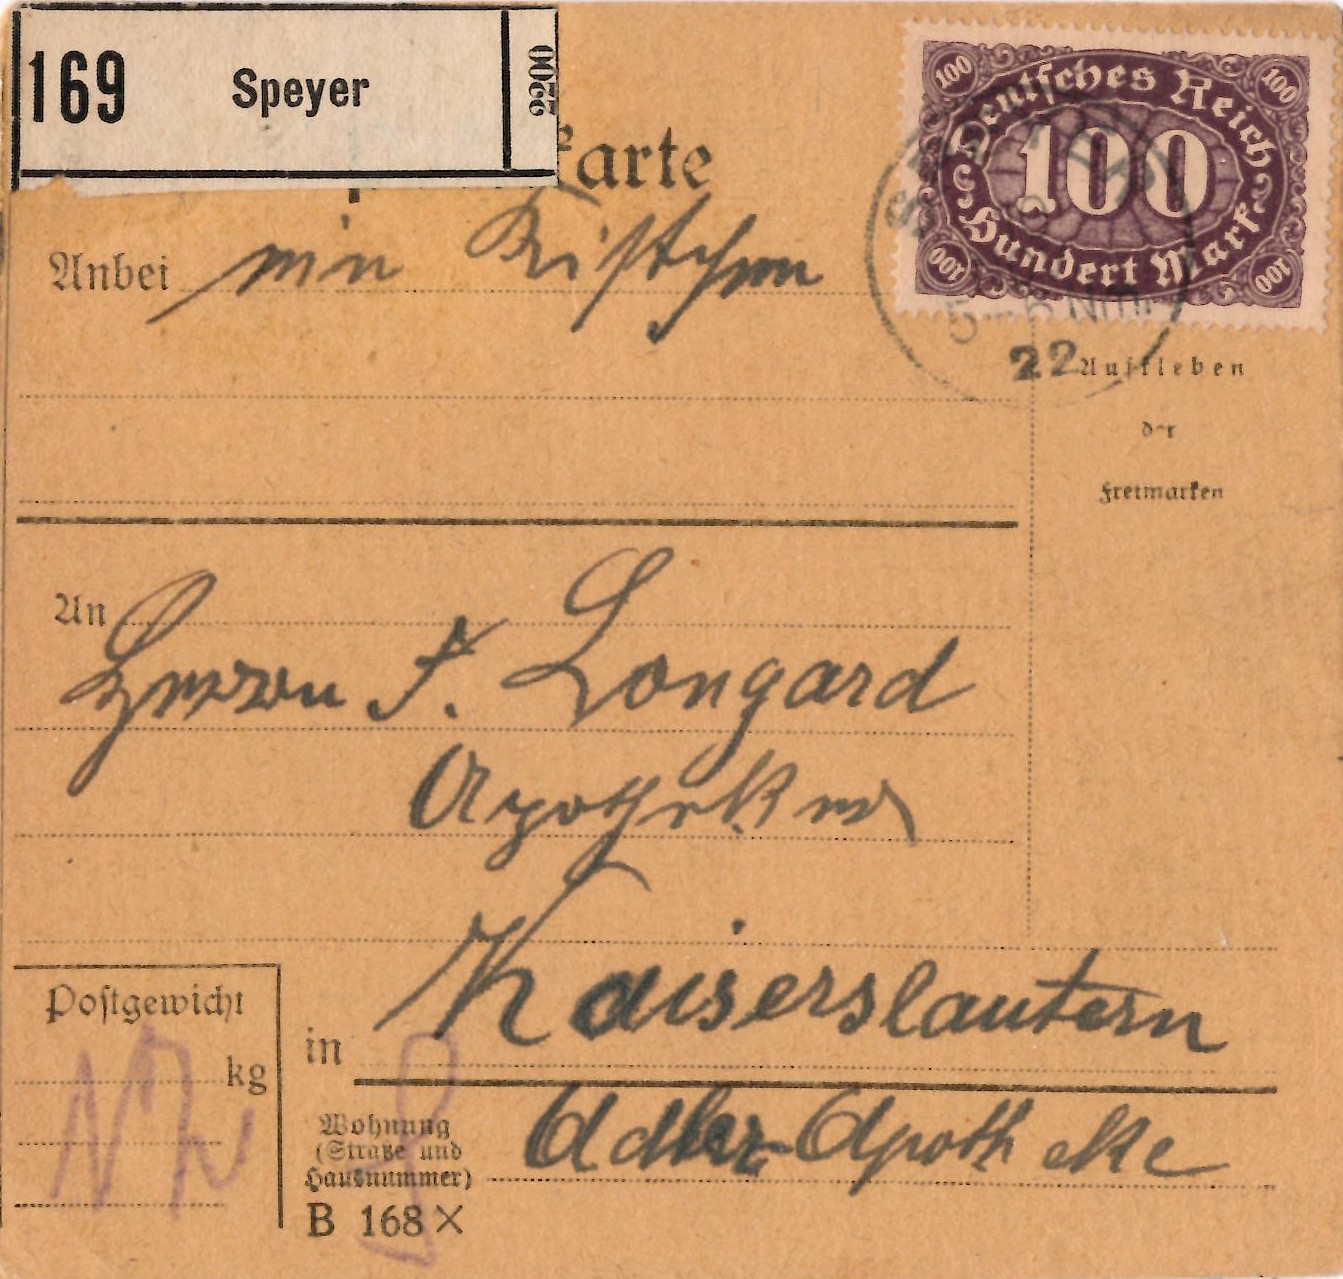 169 Speyer 2200
karte
Deutsches Reich
100 100
100
Hundert Mark
100 100
Anbei ein Kistchen
5-6 Nm
22
Aufkleben
der
Freimarken
An
Herrn F. Longard
Apotheker
Kaiserslautern
in
Postgewicht
kg
Wohnung
(Straße und
Hausnummer)
Adler-Apotheke
B 168 X